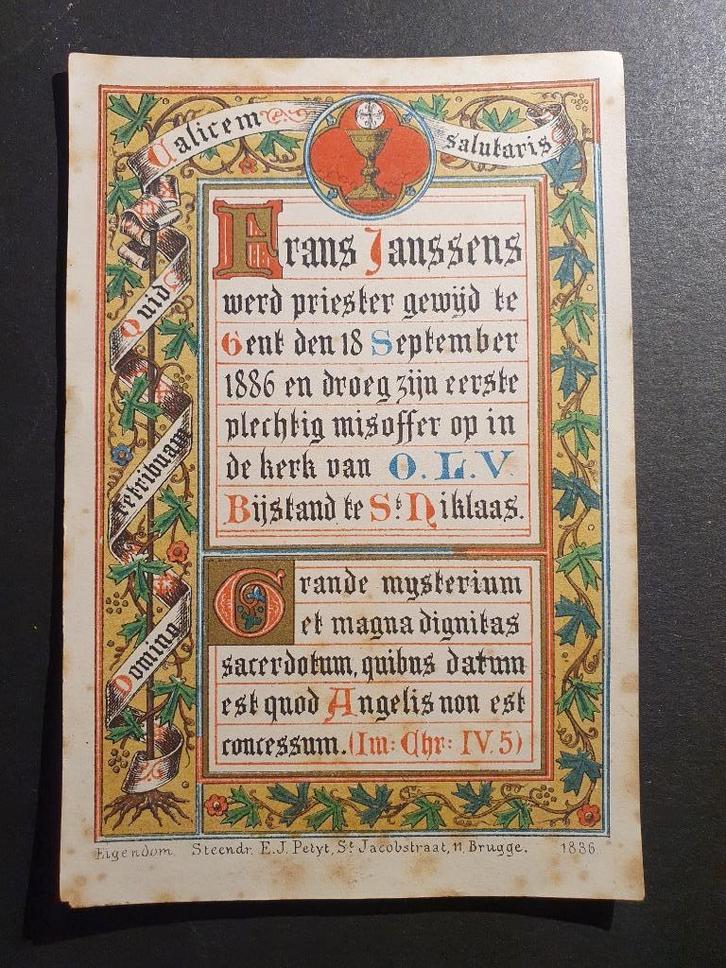 Calicem
salutaris
Quid
retribuam
Domino
Frans Janssens
werd priester gewijd te
Gent den 18 September
1886 en droeg zijn eerste
plechtig misoffer op in
de kerk van O. L. V.
Bijstand te St Niklaas.
Grande mysterium
et magna dignitas
sacerdotum, quibus datum
est quod Angelis non est
concessum. (Im: Chr: IV. 5)
Eigendom. Steendr. E. J. Petyt, St Jacobstraat, 11, Brugge. 1886